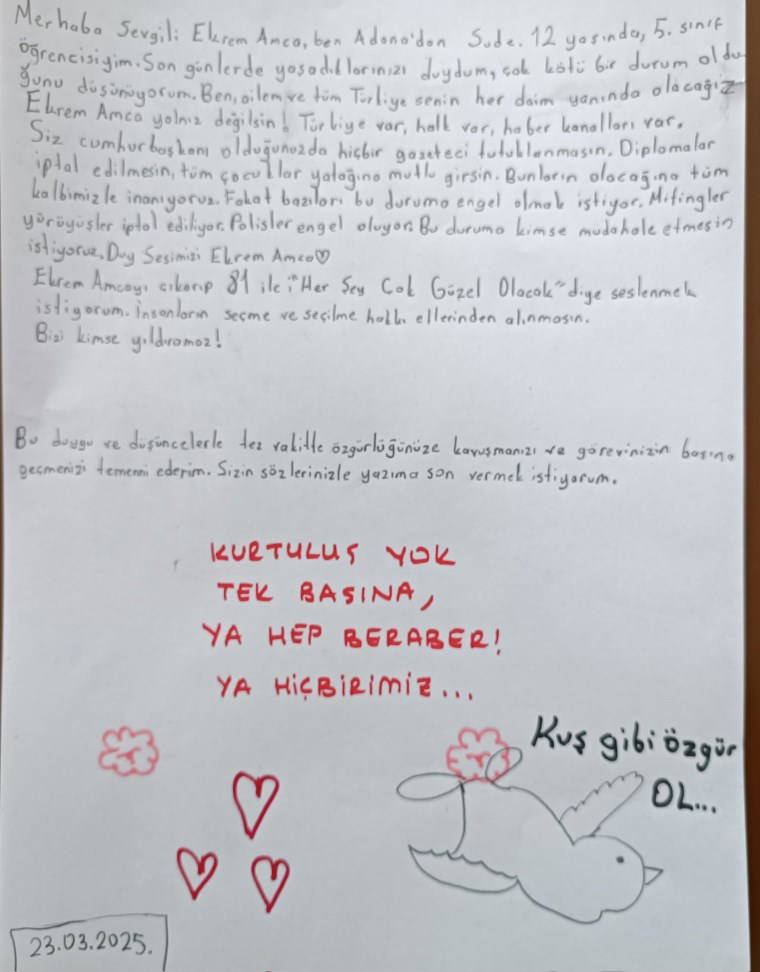 Merhaba Sevgili Ekrem Amca, ben Adana'dan Sude. 12 yaşında, 5. sınıf
öğrencisiyim. Son günlerde yaşadıklarınızı duydum, çok kötü bir durum oldu
ğunu düşünüyorum. Ben, ailem ve tüm Türkiye senin her daim yanında olacağız
Ekrem Amca yalnız değilsin! Türkiye var, halk var, haber kanalları var.
Siz cumhurbaşkanı olduğunuzda hiçbir gazeteci tutuklanmasın. Diplomalar
iptal edilmesin, tüm çocuklar yatağına mutlu girsin. Bunların olacağına tüm
kalbimizle inanıyoruz. Fakat bazıları bu duruma engel olmak istiyor. Mitingler
yürüyüşler iptal ediliyor. Polisler engel oluyor. Bu duruma kimse müdahale etmesin
istiyoruz. Duy Sesimizi Ekrem Amca♡
Ekrem Amcayı çıkarıp 81 ile "Her Şey Çok Güzel Olacak" diye seslenmek
istiyorum. İnsanların seçme ve seçilme hakkı ellerinden alınmasın.
Bizi kimse yıldıramaz!
Bu duygu ve düşüncelerle tez vakitte özgürlüğünüze kavuşmanızı ve görevinizin başına
geçmenizi temenni ederim. Sizin sözlerinizle yazıma son vermek istiyorum.
KURTULUŞ YOK
TEK BAŞINA,
YA HEP BERABER!
YA HİÇBİRİMİZ...
Kuş gibi özgür
OL...
23.03.2025.